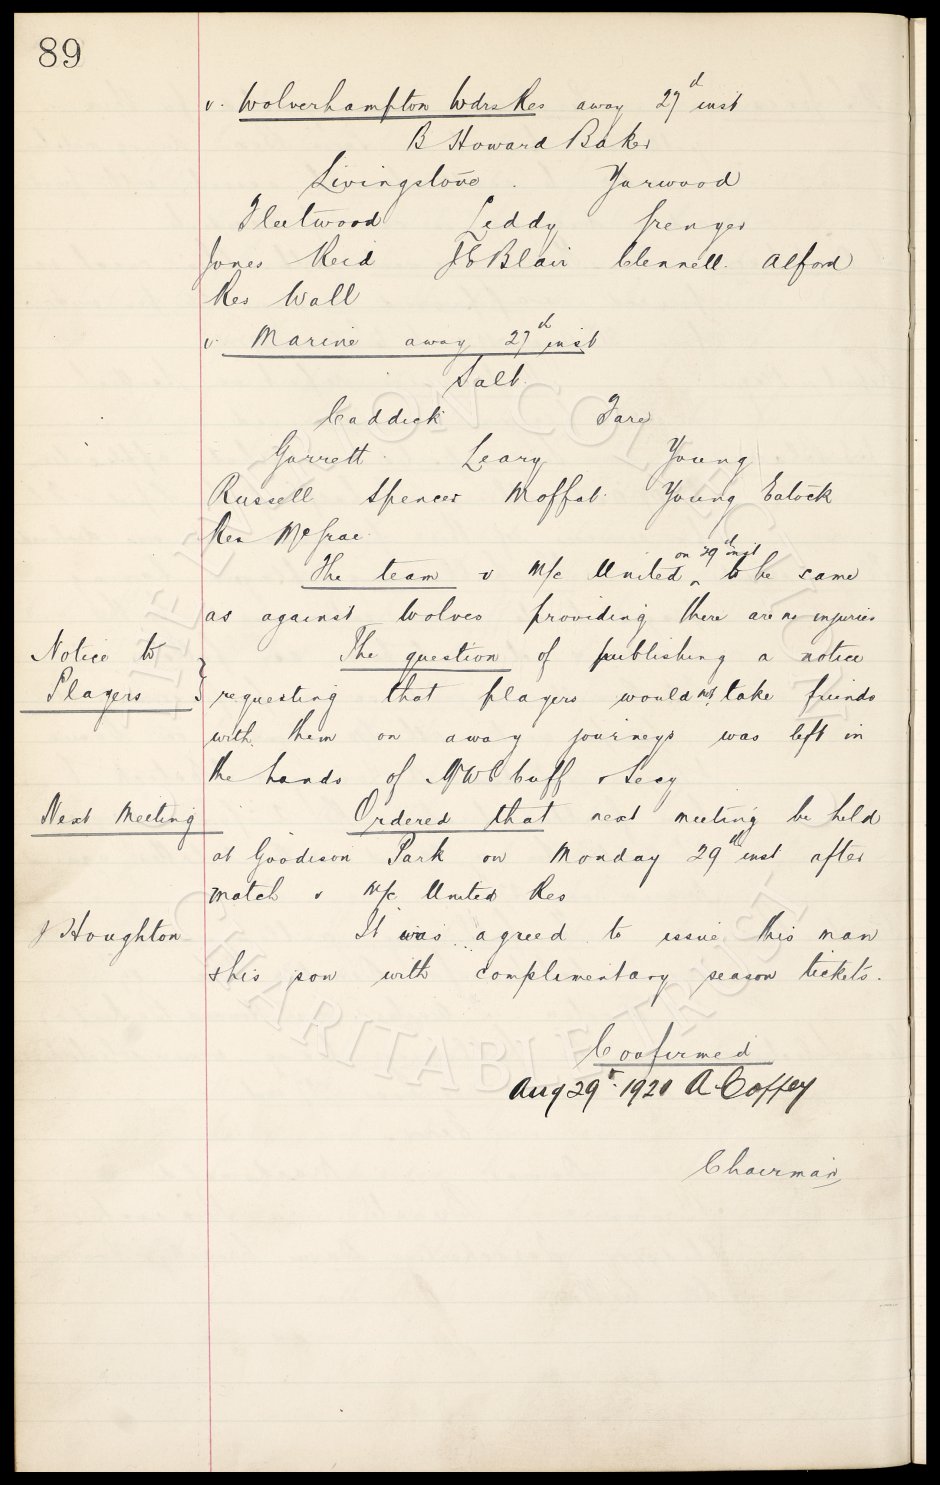 89
v. Wolverhampton Wdrs Res away 27th inst
B Howard Baker
Livingstone Yarwood
Fleetwood Leddy Grenyer
Jones Reid J E Blair Clennell. Alford
Res Wall
v. Marine away 27th inst
Salt.
Caddick Fare
Garrett. Leary Young
Russell Spencer Moffat. Young Eatock
Res
The team v M/c United on 29th inst to be same
as against Wolves providing there are no injuries
Notice to Players } The question of publishing a notice
requesting that players would not take friends
with them on away journeys was left in
the hands of Mr W C Cuff & Secy
Next Meeting Ordered that next meeting be held
at Goodison Park on Monday 29th inst after
match v M/c United Res
J Houghton It was agreed to issue this man
& his son with complimentary season tickets.
Confirmed
Aug 29th 1921 A. Coffey
Chairman
THE EVERTON COLLECTION
CHARITABLE TRUST